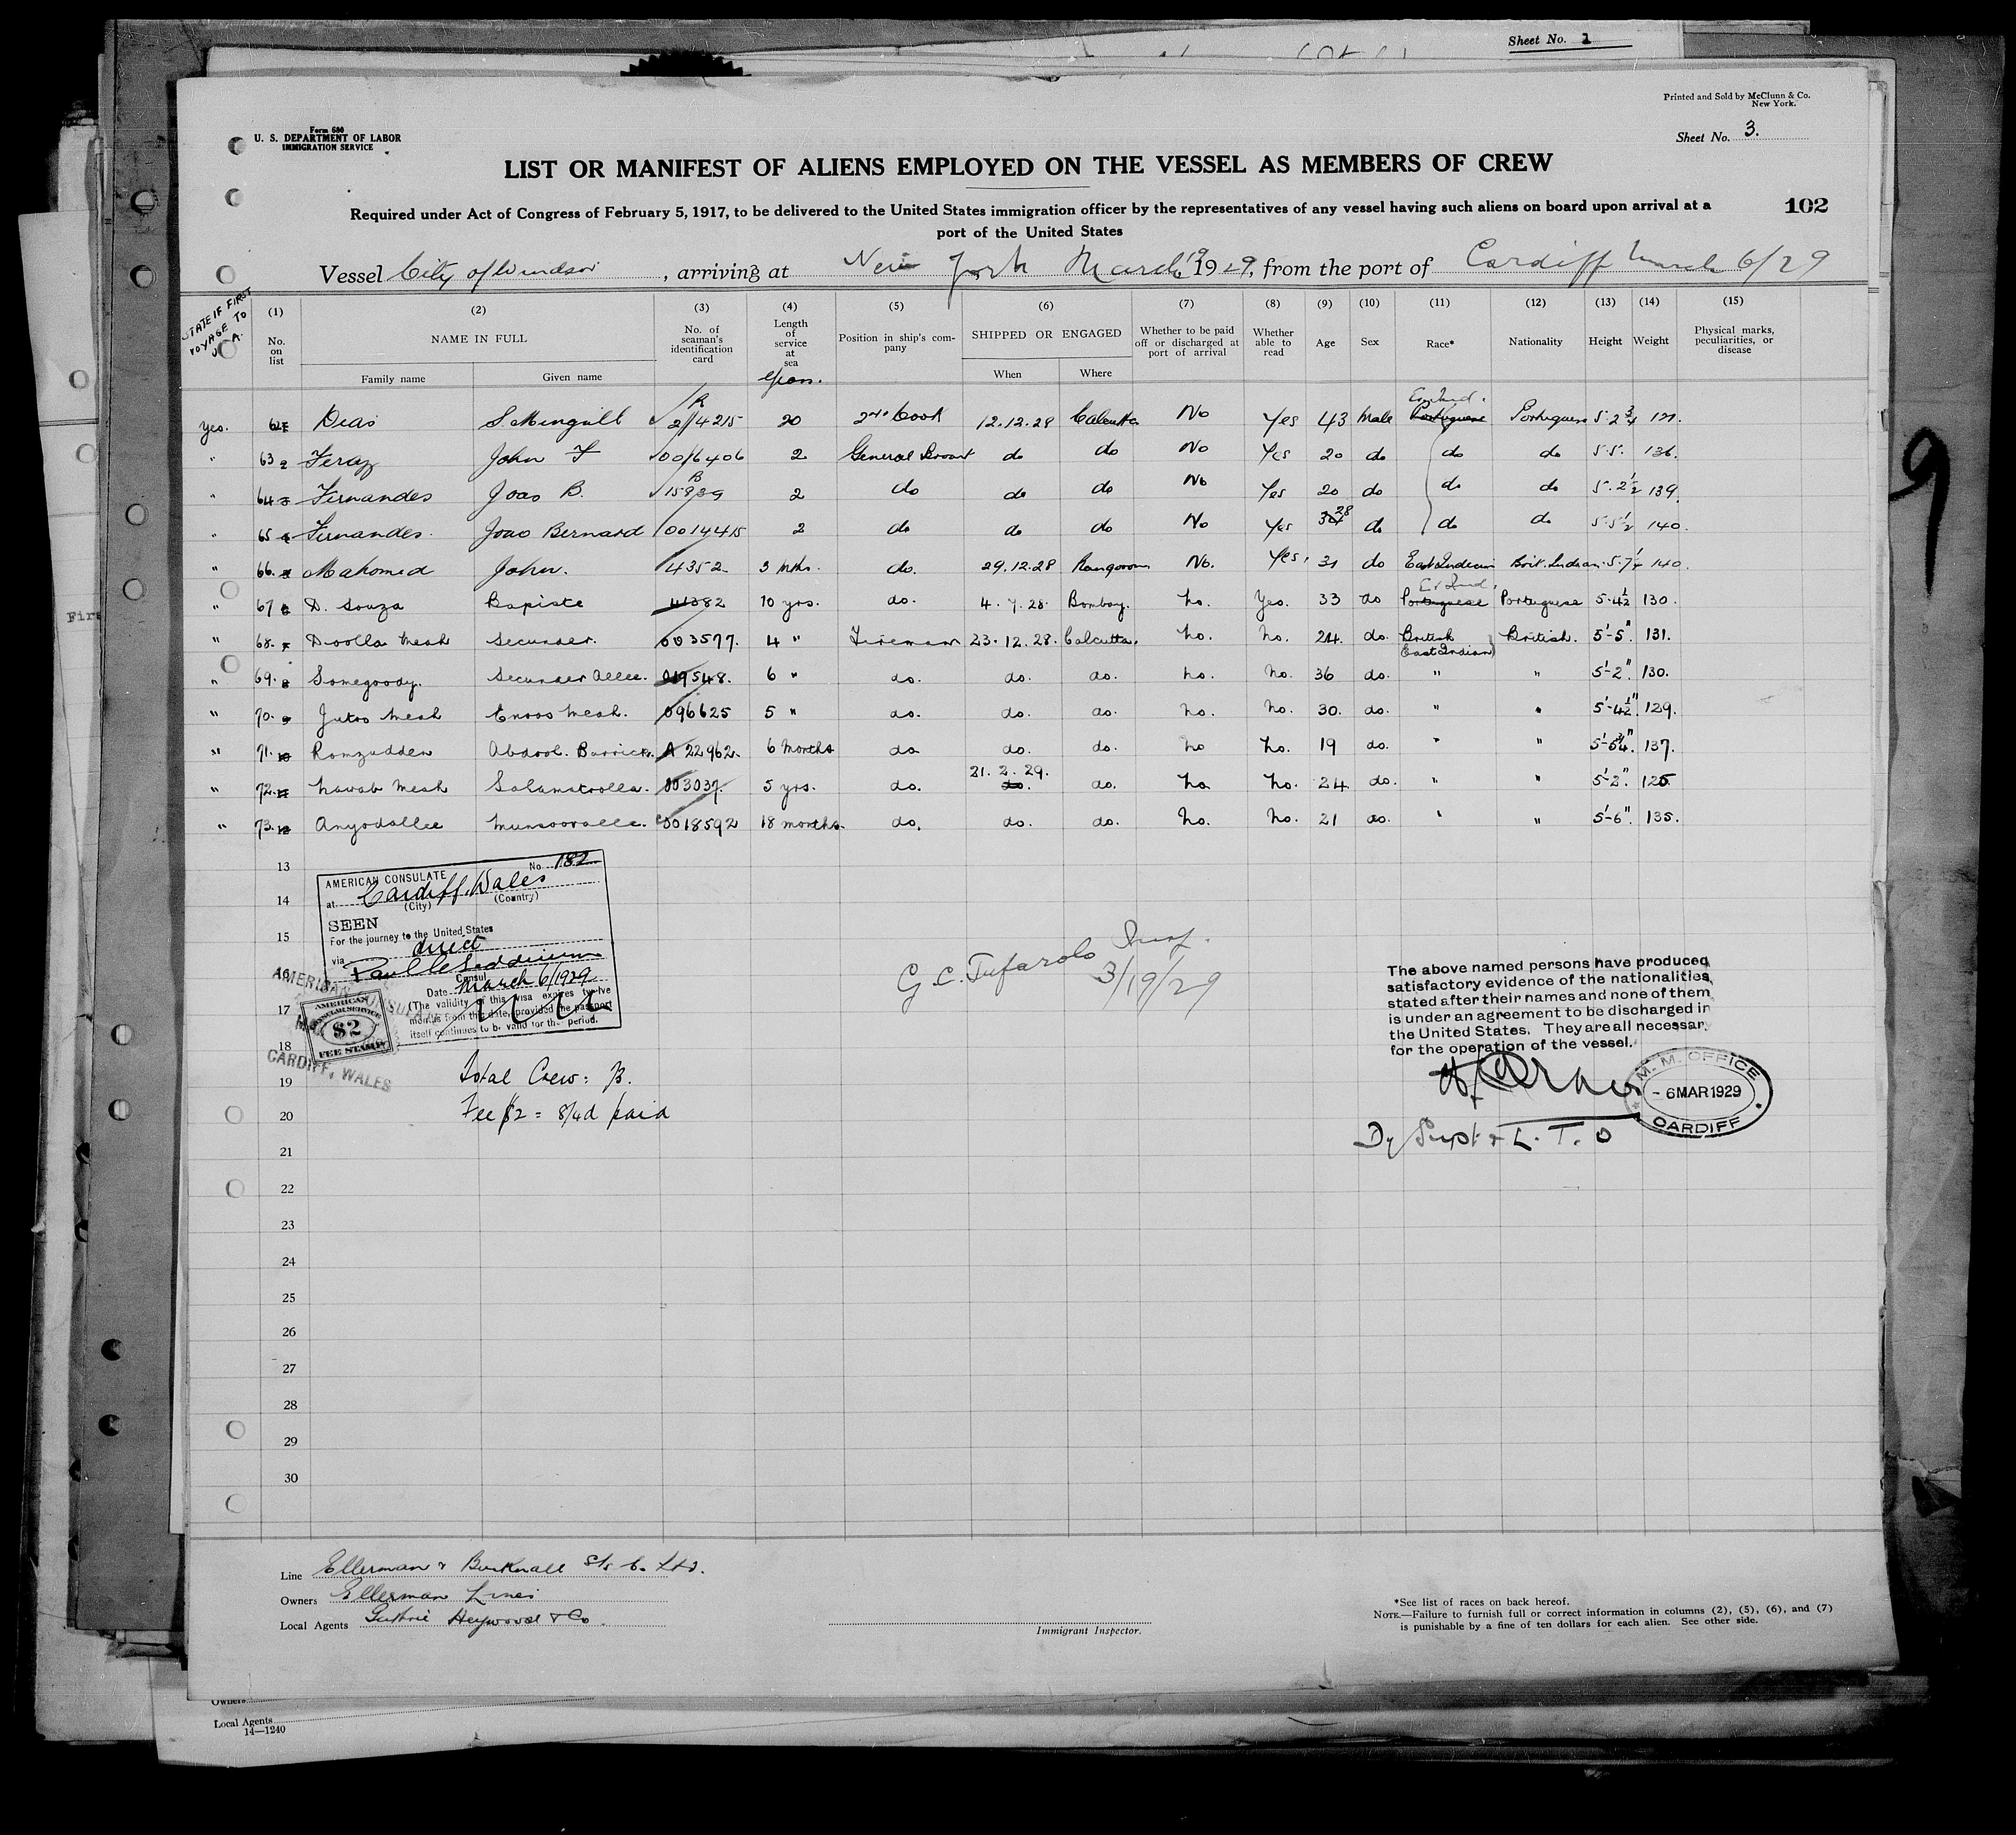 Sheet No. 1
Printed and Sold by McClunn & Co.
New York.
Sheet No. 3.
Form 680
U. S. DEPARTMENT OF LABOR
IMMIGRATION SERVICE
LIST OR MANIFEST OF ALIENS EMPLOYED ON THE VESSEL AS MEMBERS OF CREW
Required under Act of Congress of February 5, 1917, to be delivered to the United States immigration officer by the representatives of any vessel having such aliens on board upon arrival at a
port of the United States
102
Vessel City of Windsor, arriving at New York March 19 1929, from the port of Cardiff March 6/29
STATE IF FIRST VOYAGE TO U.S.A.
(1) No. on list
(2) NAME IN FULL
Family name Given name
(3) No. of seaman's identification card
(4) Length of service at sea
(5) Position in ship's company
(6) SHIPPED OR ENGAGED
When Where
(7) Whether to be paid off or discharged at port of arrival
(8) Whether able to read
(9) Age
(10) Sex
(11) Race*
(12) Nationality
(13) Height
(14) Weight
(15) Physical marks, peculiarities, or disease
Yes. 62 Dias S. Minguill 2/14215 20 2nd Cook 12.12.28 Calcutta No Yes 43 Male Portuguese Portuguese 5-2 3/4 121.
" 63 Feraz John F 0016406 2 General Servant do do No Yes 20 do do do 5.5. 136.
" 64 Fernandes Joao B. 2 do do do No Yes 20 do do do 5.2 1/2 139.
" 65 Fernandes Joao Bernard 0014415 2 do do do No Yes 28 do do do 5.5 1/2 140.
" 66. Mahomed John. 4352 3 mths. do. 29.12.28 Rangoon No. Yes, 31 do East Indian Brit. Indian 140.
" 67 D. Souza Bapiste 41382 10 yrs. do. 4.7.28. Bombay. No. Yes. 33 do E. Ind. Portuguese Portuguese 5-4 1/2 130.
" 68. Doolla Meah Secunder. 003577. 4 " Fireman 23.12.28. Calcutta. No. No. 24. do. British East Indian British. 5'-5". 131.
" 69. Somegoody. Secunder Allee. 019548. 6 " do. do. do. No. No. 36 do. " " 5'-2". 130.
" 70. Jutoo Meah Enoos Meah. 096625 5 " do. do. do. No. No. 30. do. " " 5'-4 1/2". 129.
" 71. Romzudden Abdool. A 22962. 6 Months do do. do. No No. 19 do. " " 137.
" 72. Nawab Meah Salamatoolla. 003037. 5 yrs. do. 21.2.29. do. No No. 24 do. " " 5'-2". 125
" 73. Anyodallee Munsooralle. 0018592 18 months. do. do. do. No. No. 21 do. " " 5'-6". 135.
13
14
15
16
17
18
19
20
21
22
23
24
25
26
27
28
29
30
AMERICAN CONSULATE No. 182
at Cardiff, Wales
(City) (Country)
SEEN
For the journey to the United States
via direct
Consul
Date March 6/1929
(The validity of this visa expires twelve
months from this date, provided the passport
itself continues to be valid for the period.
AMERICAN CONSULAR SERVICE
$2
FEE STAMP
AMERICAN CONSULATE
CARDIFF, WALES
Total Crew: 73.
Fee $2 = 8/4d paid
G. C. Tufarolo Insp.
3/19/29
The above named persons have produced
satisfactory evidence of the nationalities
stated after their names and none of them
is under an agreement to be discharged in
the United States. They are all necessary
for the operation of the vessel.
Dy Supt & L. T. O
M. M. OFFICE
- 6 MAR 1929
CARDIFF
Line Ellerman & Bucknall S/s Co. Ltd.
Owners Ellerman Lines
Local Agents Guthrie Heywood & Co.
Immigrant Inspector.
*See list of races on back hereof.
NOTE.—Failure to furnish full or correct information in columns (2), (5), (6), and (7)
is punishable by a fine of ten dollars for each alien. See other side.
Owners
Local Agents
14—1240
9